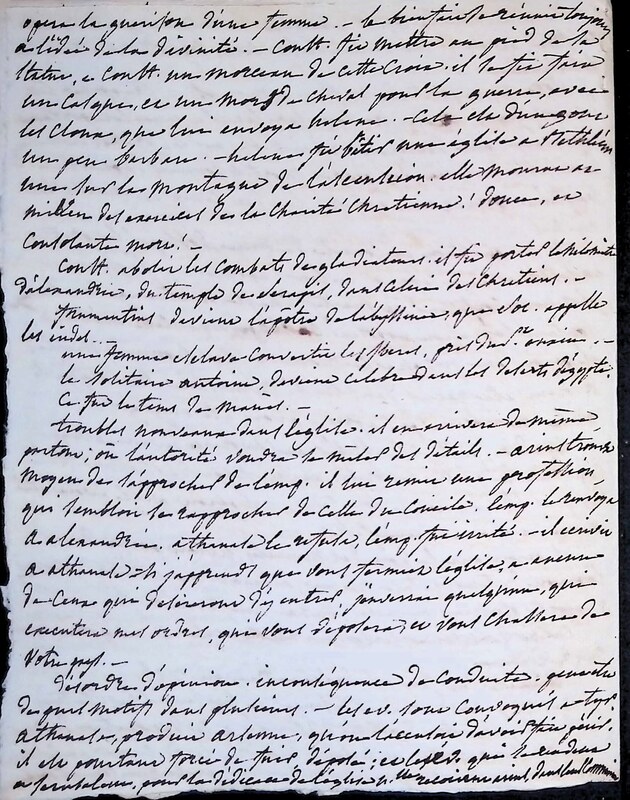 opera la guérison d'une femme. — le bienfait se réunit toujours
a l'idée de la divinité. — Constt. fit mettre au pied de sa
statue, a Constt. un morceau de cette Croix. il se fit faire
un Casque, et un mors de cheval pour la guerre, avec
les cloux, que lui envoya helene. — Cela est d'un gout
un peu barbare. — helene fit bâtir une église a Bethléem
une sur la montagne de l'ascension. elle mourut au
milieu des exercices de la Charité Chretienne! douce, et
Consolante mort! —
Constt. abolit les combats de gladiateurs. il fit porter le nilometre
d'alexandrie, du temple de serapis, dans celui des Chretiens. —
frumentius devient l'apôtre de l'abyssinie, que soc. appelle
les indes. —
une femme esclave convertit les Iberes, près du
le solitaire antoine, devient celebre dans les deserts d'égypte.
Ce fut le tems de
troubles nouveaux dans l'église. il en arrivera de même
partout, où l'autorité voudra se mêler des détails. — arius trouva
moyen de s'approcher de l'emp. il lui remit une profession,
qui sembloit se rapprocher de celle du Concile. l'emp. le renvoya
a alexandrie. athanase le refusa, l'emp. fut irrité. — il ecrivit
a athanase. si j'apprends que vous fermiez l'église, a aucun
de Ceux qui desireront d'y entrer, j'enverrai quelqu'un, qui
executera mes ordres, qui vous deposera, et vous chassera de
votre
désordre d'opinion. inconséquence de conduite. peut être
de purs motifs dans plusieurs. — les ev. sont convoqués a tyr
athanase, produit arsenne, qu'on l'accusoit d'avoir fait périr.
il est pourtant forcé de fuir, déposé; et les ev. qui se rendent
a jerusalem, pour la dédicace de l'église reçoivent arius, dans leur Communion